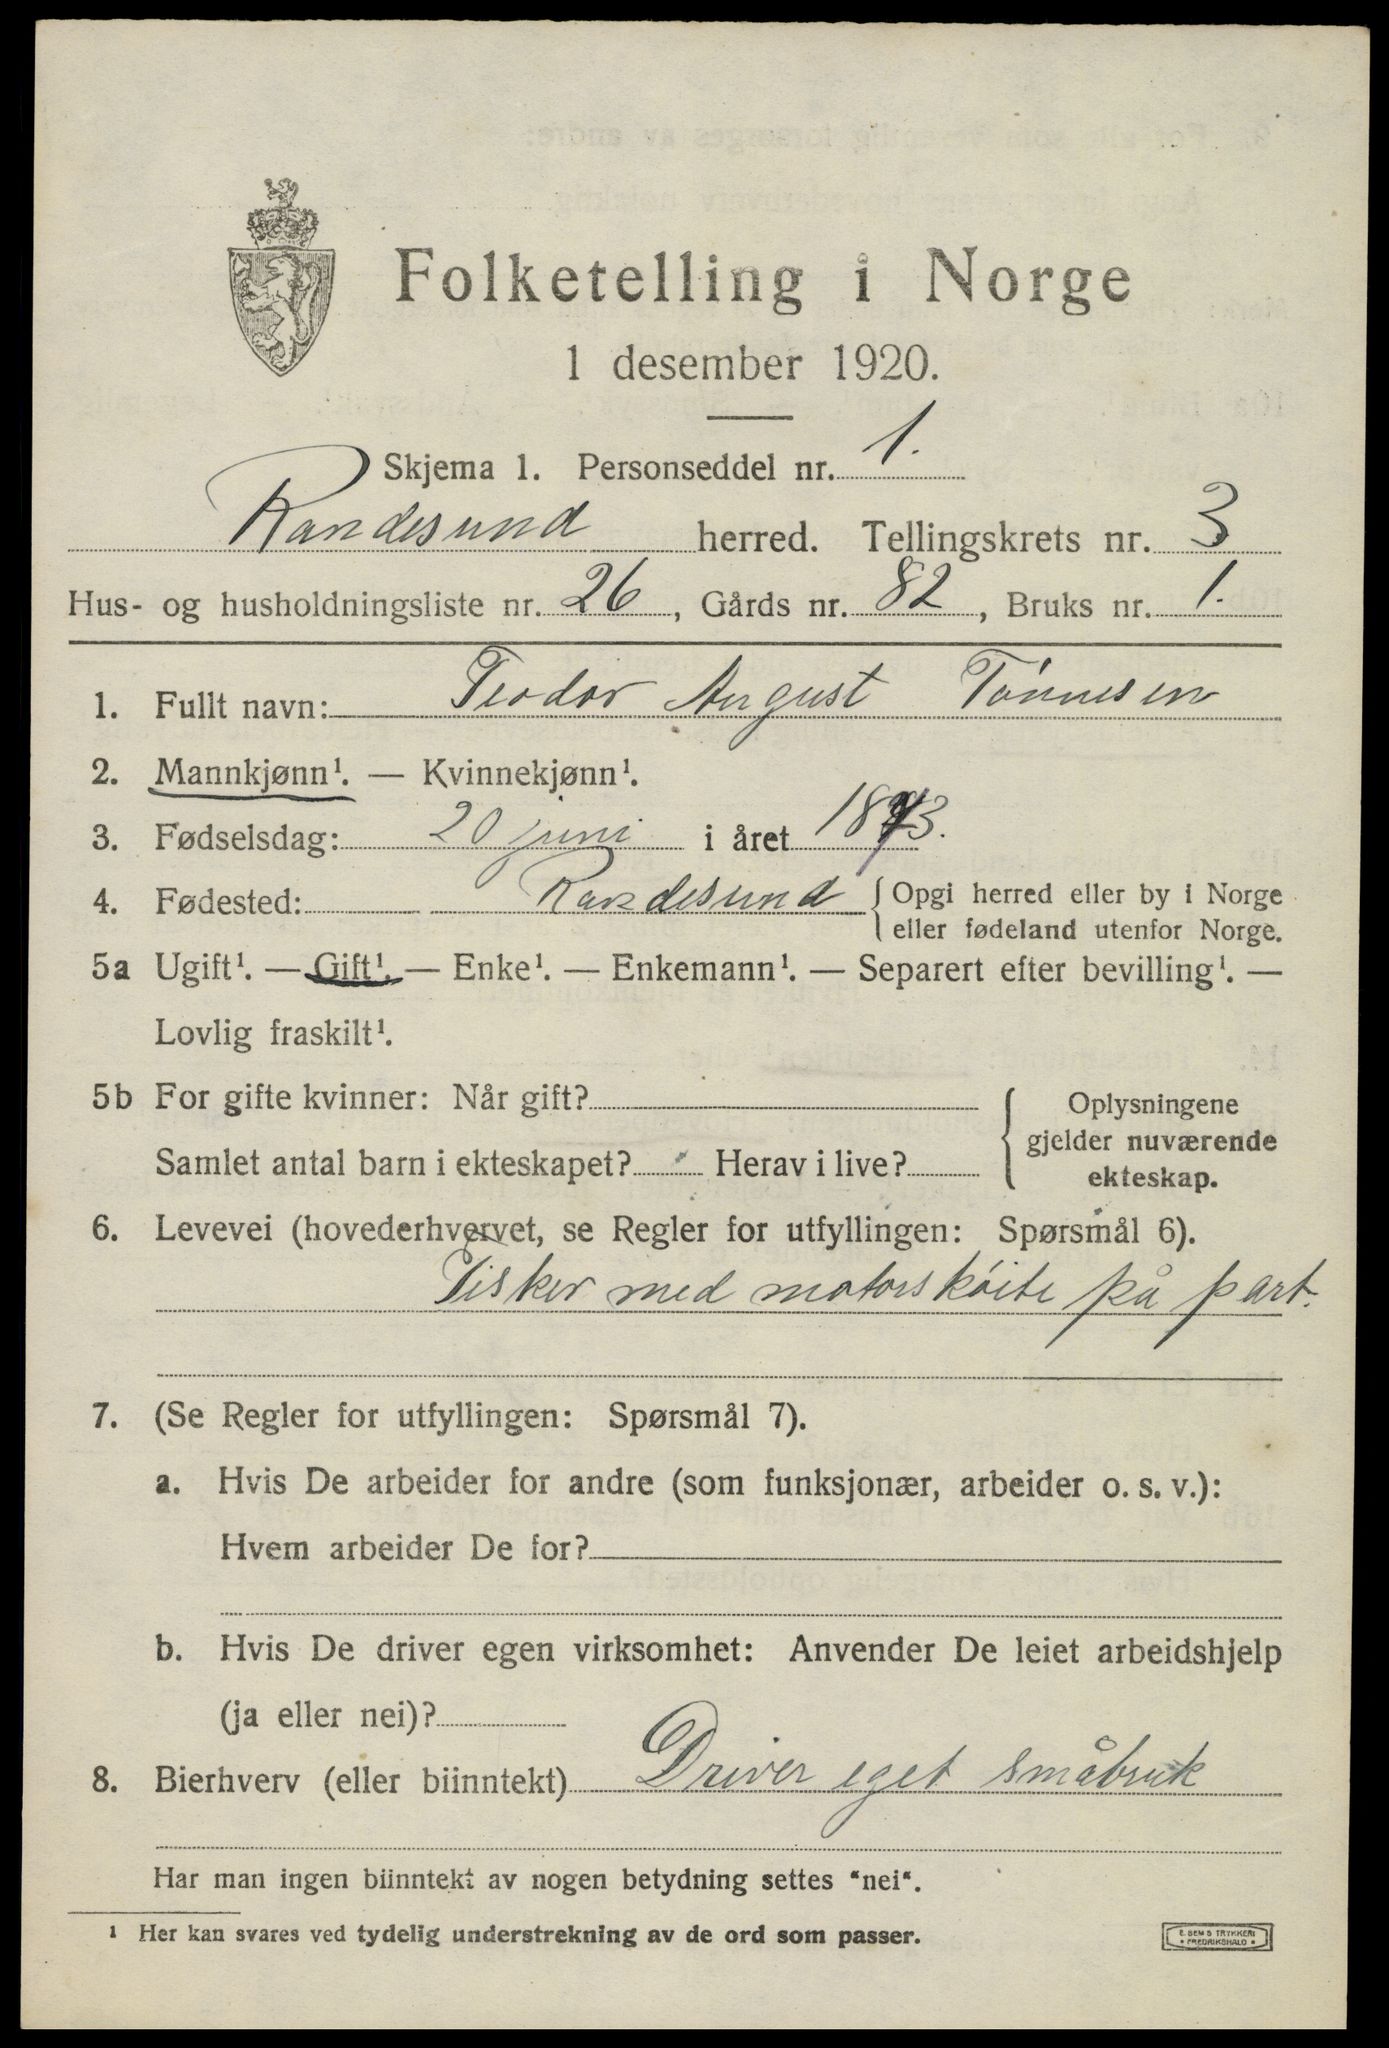 Folketelling i Norge
1 desember 1920.
Skjema 1. Personseddel nr. 1.
Randesund herred. Tellingskrets nr. 3
Hus- og husholdningsliste nr. 26, Gårds nr. 82, Bruks nr. 1.
1. Fullt navn: Teodor August Tónnesen
2. Mannkjønn¹. — Kvinnekjønn¹.
3. Fødselsdag: 20 juni i året 1873.
4. Fødested: Randesund { Opgi herred eller by i Norge
eller fødeland utenfor Norge.
5a Ugift¹. — Gift¹. — Enke¹. — Enkemann¹. — Separert efter bevilling¹. —
Lovlig fraskilt¹.
5b For gifte kvinner: Når gift? { Oplysningene
gjelder nuværende
Samlet antal barn i ekteskapet? Herav i live? ekteskap.
6. Levevei (hovederhvervet, se Regler for utfyllingen: Spørsmål 6).
Fisker med motorskóite på part.
7. (Se Regler for utfyllingen: Spørsmål 7).
a. Hvis De arbeider for andre (som funksjonær, arbeider o. s. v.):
Hvem arbeider De for?
b. Hvis De driver egen virksomhet: Anvender De leiet arbeidshjelp
(ja eller nei)?
8. Bierhverv (eller biinntekt) Driver eget småbruk
Har man ingen biinntekt av nogen betydning settes "nei".
¹ Her kan svares ved tydelig understrekning av de ord som passer.
E. SEM'S TRYKKERI
• FREDRIKSHALD •